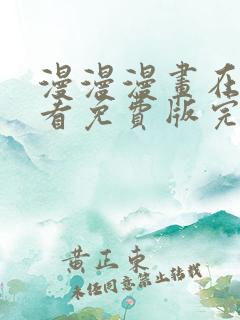 漫漫漫畫在
看免費版完
黄正東
未任同意策止转载